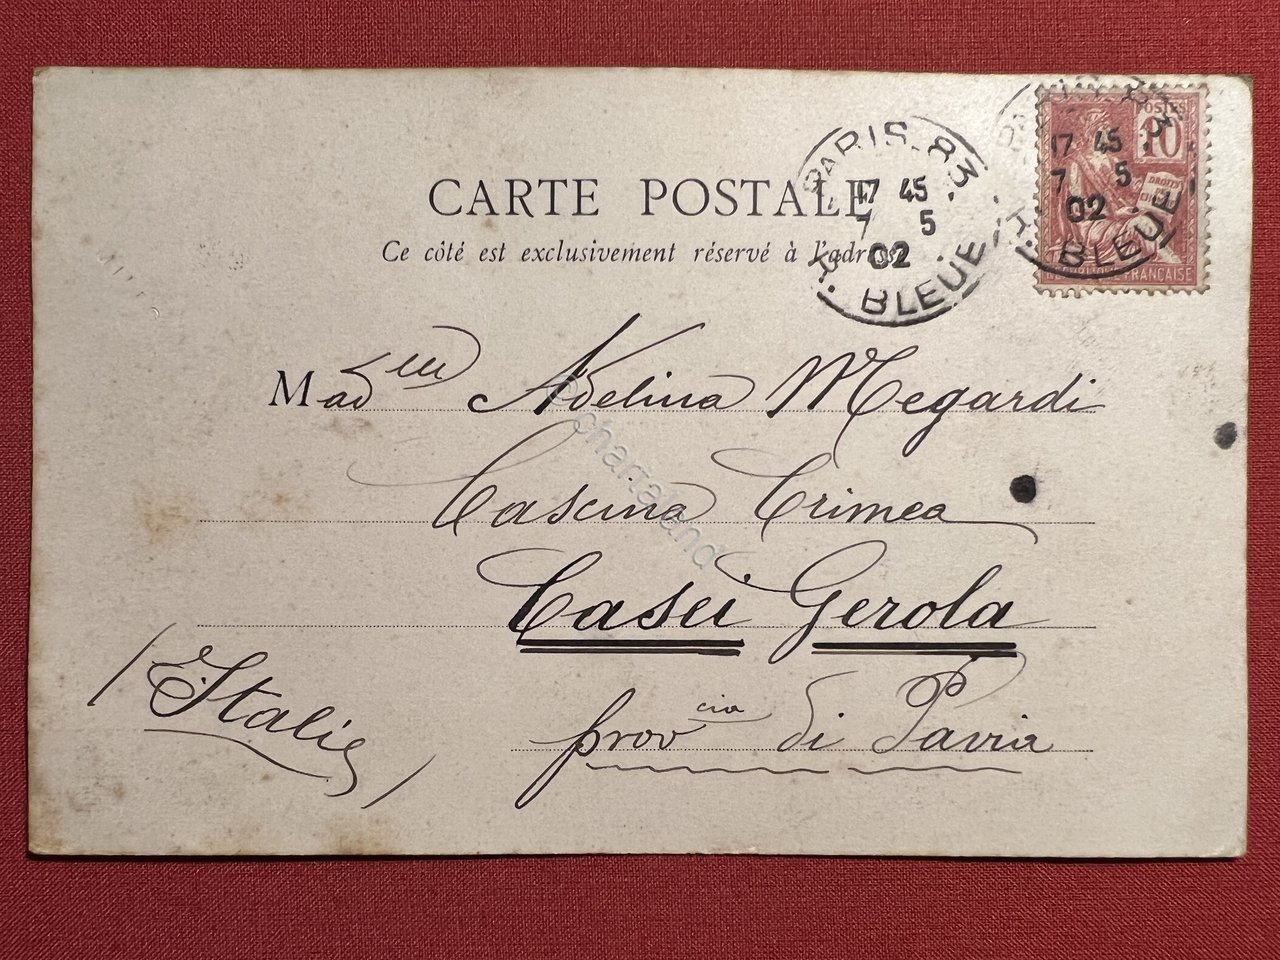 CARTE POSTALE
Ce côté est exclusivement réservé à l'adresse
PARIS.83
17 45
7 5
02
BLEUE
POSTES
10
17 45
7 5
02
BLEUE
RÉPUBLIQUE FRANÇAISE
Madelle Adelina Megardi
Cascina Crimea
Casei Gerola
provcia di Pavia
(Italie)
© chartaland